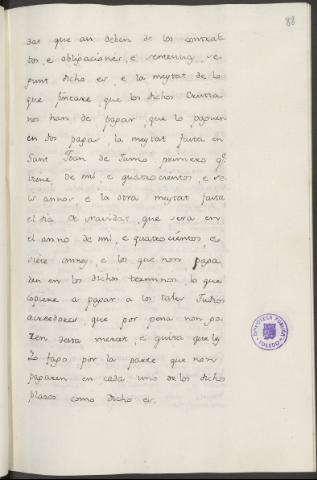 88
das que an deben de los contrac
tos, e obligaciones, e sentencias, se
gunt dicho es, e la meytat de lo
que fincare, que los dichos Cristia
nos han de pagar, que lo paguen
en dos pagas, la meytat fasta en
Sant Joan de Junio, primero q.e
viene, de mil, e quatrocientos, e se
is annos, e la otra meytat fasta
el dia de Navidat, que sera en
el anno de mil, e quatrocientos, e
siete annos, e los que non paga
ren en los dichos terminos, lo que
copiere a pagar a los tales Judios
acreedores, que por pena non go
zen desta merced, e quita que les
Yo fago por la parte que non
pagaren en cada uno de los dichos
plasos como dicho es.
BIBLIOTECA PUBLICA
TOLEDO